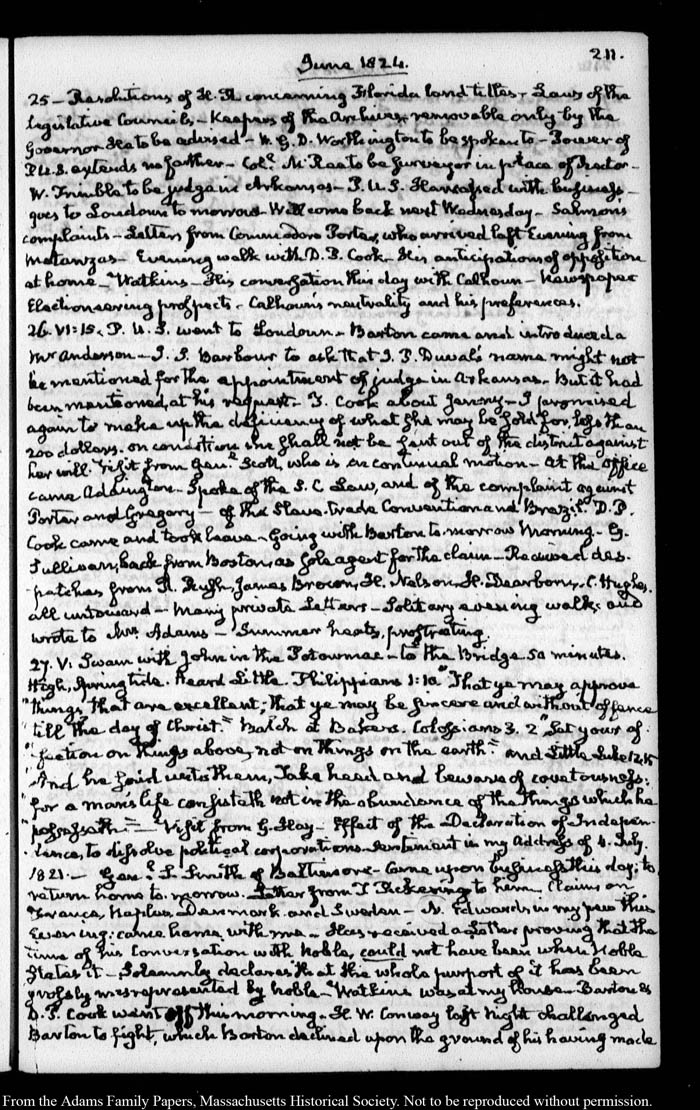 June 1824.
211.
25 – Resolutions of H. R. concerning Florida land titles – Laws of the
Legislative Councils – Keepers of the Archives removable only by the
Governor. He to be advised – W. G. D. Worthington to be spoken to – Power of
P. U. S. extends no farther – Col.ᶜ McRee to be Surveyor in place of Rector –
W. Trimble to be judge in Arkansas – P. U. S. Harrassed with business –
goes to Loudoun to morrow. Will come back next Wednesday – Salmon's
complaints – Letters from Commodore Porter, who arrived last Evening from
Matanzas – Evening walk with D. P. Cook – His anticipations of opposition
at home – Watkins – His conversation this day with Calhoun – Newspaper
Electioneering prospects – Calhoun's neutrality and his preferences.
26. VI: 15. P. U. S. went to Loudoun – Barton came and introduced a
Mr Anderson – J. S. Barbour to ask that J. P. Duval's name might not
be mentioned for the appointment of judge in Arkansas. But it had
been mentioned, at his request – Cook about Jenny – I promised
again to make up the deficiency of what she may be sold for, less than
200 dollars. on condition she shall not be sent out of the district against
her will. Visit from Gen.ˡ Scott, who is in continual motion – At the Office
came Addington – Spoke of the S. C. Law, and of the complaint against
Porter and Gregory – of the Slave-trade Convention and Brazil. D. P.
Cook came and took leave – Going with Barton to-morrow Morning – G.
Sullivan, back from Boston, as sole agent for the claim – Received des-
patches from R. Rush, James Brown, H. Nelson, H. Dearborn, C. Hughes.
all untoward – Many private Letters – Solitary evening walk: and
wrote to Mrs Adams – Summer heats, prostrating.
27. V. Swam with John in the Potowmac – to the Bridge 50 minutes.
High, Spring tide. Heard Little. Philippians 1: 10. "That ye may approve
"things that are excellent; that ye may be sincere and without offence
"till the day of Christ." Balch at Bakers. Colossians 3. 2 "Set your af-
"fection on things above, not on things on the earth" and Little Luke 12. 15
"And he said unto them, Take heed and beware of covetousness:
"for a man's life consisteth not in the abundance of the things which he
"possesseth" – Visit from G. Hay – Effect of the Declaration of Indepen-
dence, to dissolve political corporations. Sentiment in my Address of 4. July.
1821. – Gen.ˡ S. Smith of Baltimore – Came upon business this day; to
return home to-morrow. Letter from T. Pickering to him. Claims on
France, Naples, Denmark and Sweden – N. Edwards in my pew this
Evening: came home with me – Has received a Letter proving that the
time of his Conversation with Noble, could not have been when Noble
States it – Solemnly declares that the whole purport of it has been
grossly misrepresented by Noble – Watkins was at my house – Barton &
D. P. Cook went off this morning – H. W. Conway last night challenged
Barton to fight, which Barton declined upon the ground of his having made
From the Adams Family Papers, Massachusetts Historical Society. Not to be reproduced without permission.